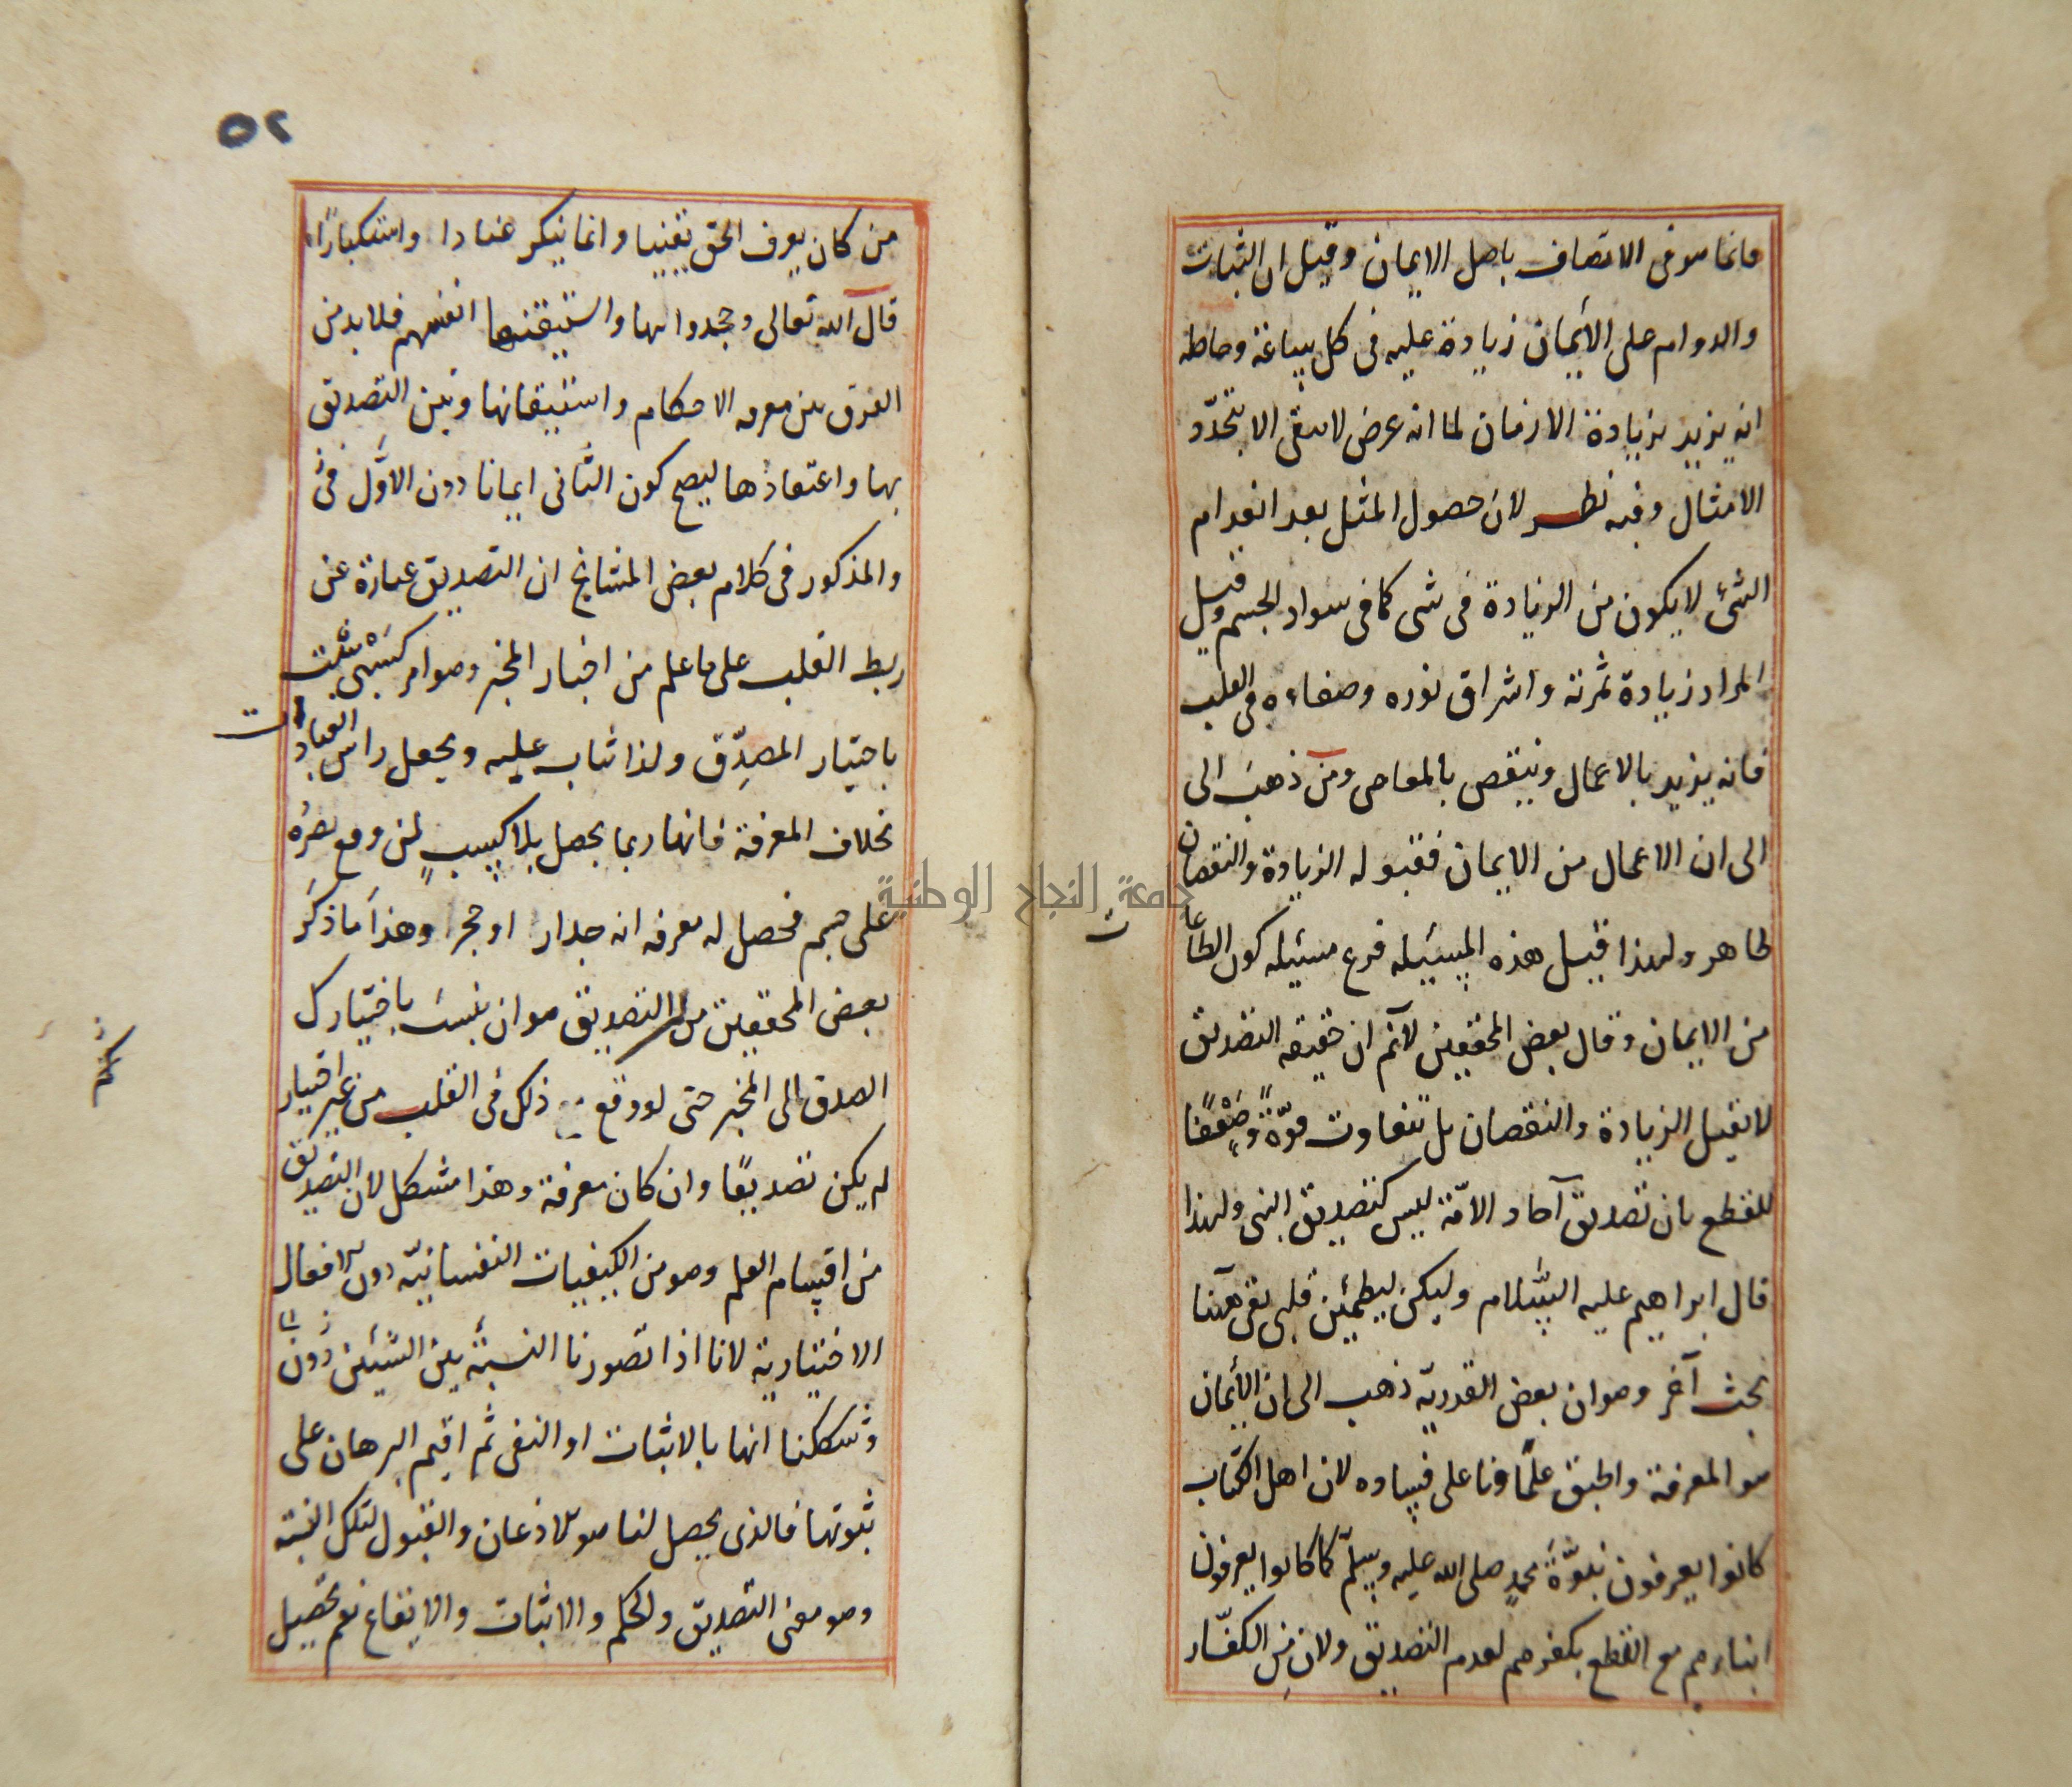 وانما هو فى الاتصاف باصل الايمان وقيل ان الثبات
والدوام على الأيمان زيادة عليه فى كل ساعة وحاصله
انه يزيد بزيادة الازمان لما انه عرض لا يبقى الا بتجدّد
الامثال وفيه نظر لان حصول المثل بعد انعدام
الشئ لا يكون من الزيادة فى شى كما فى سواد الجسم وقيل
المراد زيادة ثمرته واشراق نوره وضياءه فى القلب
فانه يزيد بالاعمال وينقص بالمعاصى ومن ذهب الى
الى ان الاعمال من الايمان فقبوله الزيادة والنقصان
ظاهر ولهذا قيل هذه المسئيله فرع مسئيله كون الطاعات
من الايمان وقال بعض المحققين لا نم ان حقيقه التصديق
لا تقبل الزيادة والنقصان بل تتفاوت قوّةً وضَعْفًا
للقطع بان تصديق آحاد الامّة ليس كتصديق النبى ولهذا
قال ابراهيم عليه السّلام وليكن ليطمئين قلبى بقى هٓهنا
بحث آخر وهو ان بعض القدريّه ذهب الى ان الأيمان
هو المعرفة واطبق علمآونا على فساده لان اهل الكتاب
كانوا يعرفون نبوّةَ محمدٍ صلى الله عليه وسلّم كما كانوا يعرفون
ابناءهم مع القطع بكفرهم لعدم التصديق ولان من الكفّار
٥٢
من كان يعرف الحق يقينا وانما ينكر عنادا واستكبارًا
قال الله تعالى وجحدوا بها واستيقنها انفسهم فلا بد من
الفرق بين معرفه الاحكام واستيقانها وبين التصديق
بها واعتقادها ليصح كون الثّانى ايمانا دون الاوّل فى
والمذكور فى كلام بعض المشايخ ان التصديق عبارة عن
ربط القلب على ما علم من اخبار المخبر وهو امر كَسْبْى يثبت
باختيار المصدِّق ولذا يثاب عليه ويجعل راس العبادات
بخلاف المعرفة فانها ربما يحصل بلا كسبٍ لمن وقع بصرُه
على جسم فحصل له معرفه انه جدار او حجر وهذا ما ذكَرَ
بعض المحققين من التصديق هو ان ينسب باختيارك
الصدق الى المخبر حتى لو وقع ذلك فى القلب من غير اختيار
لم يكن تصديقًا وان كان معرفة وهذا مشكل لان التصديق
من اقسام العلم وهو من الكيفيات النفسانيّه دون الافعال
الاختيارية لانا اذا تصورنا النسبة بين الشيئين
وشككنا انها بالاثبات او النفى ثم اقيم البرهان على
ثبوتها فالذى يحصل لنا هو الاذعان والقبول لتلك النسبة
وهو معنى التصديق والحكم والاثبات والايقاع نعم تحصيل
جامعة النجاح الوطنية